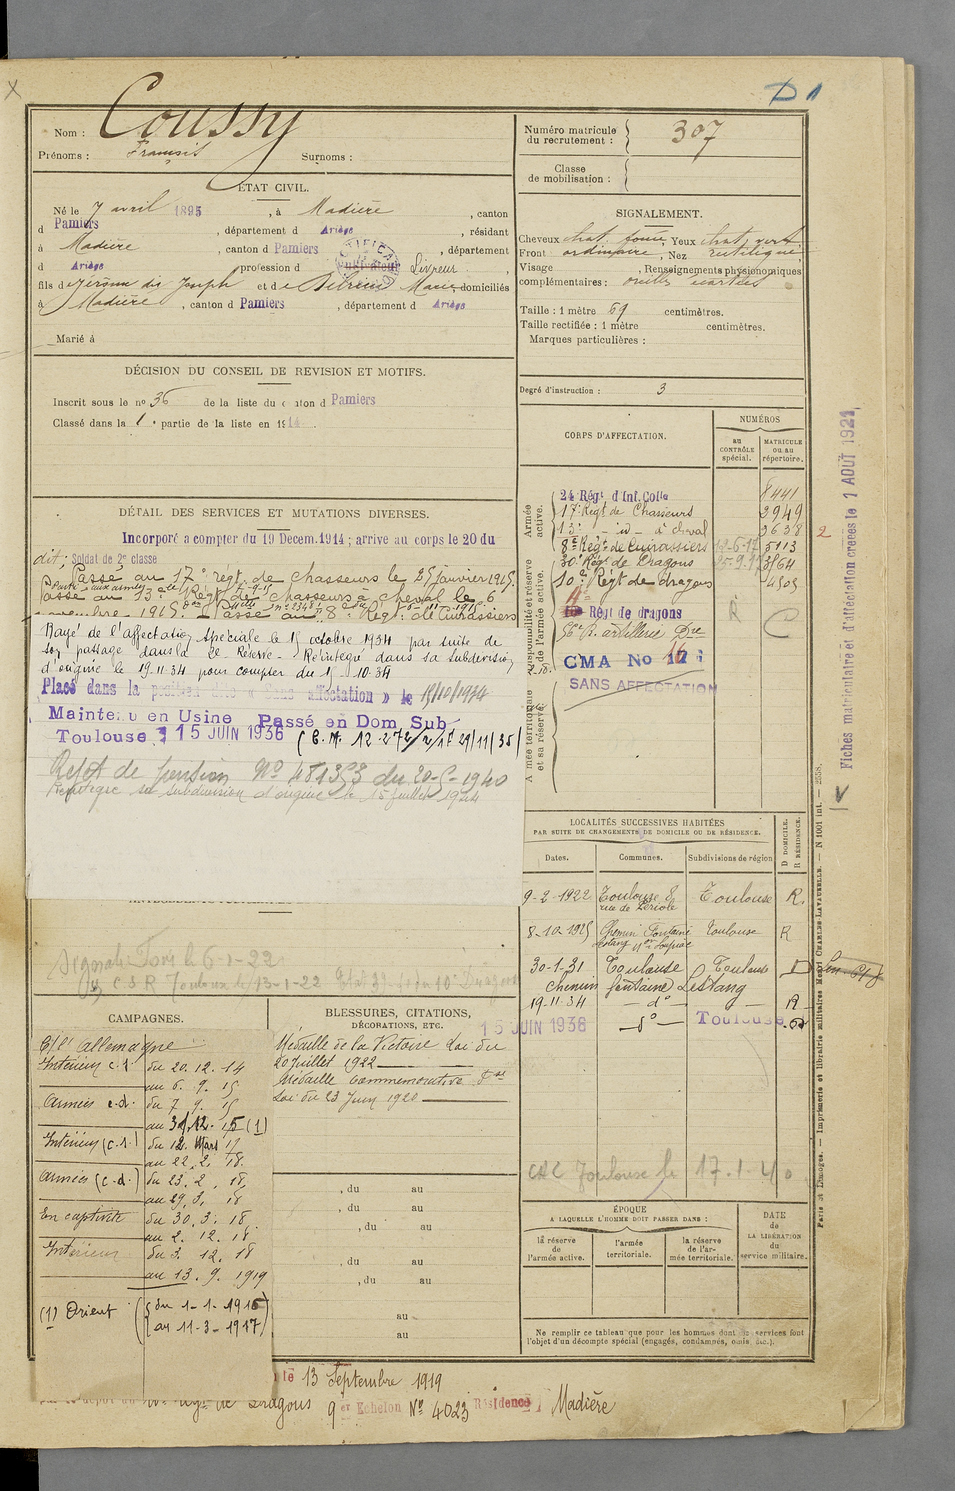 D 1
Nom : Coussy
Prénoms : François Surnoms :
ÉTAT CIVIL.
Né le 7 avril 1895, à Madière, canton
d Pamiers, département d Ariège, résidant
à Madière, canton d Pamiers, département
d Ariège, profession d Cultivateur Livreur,
fils de Jérôme dis Joseph et de Marie domiciliés
à Madière, canton d Pamiers, département d Ariège
Marié à
DÉCISION DU CONSEIL DE REVISION ET MOTIFS.
Inscrit sous le no 36 de la liste du canton d Pamiers
Classé dans la 1e partie de la liste en 1914.
DÉTAIL DES SERVICES ET MUTATIONS DIVERSES.
Incorporé a compter du 19 Decem. 1914 ; arrive au corps le 20 du
dit ; Soldat de 2e classe
Passé au 17e régt de chasseurs le 25 janvier 1915.
Parti aux armées le 7-9-15
Passé au 13e Régt de chasseurs à cheval le 6
novembre 1915. Passé au 8e Régt de Cuirassiers
Rayé de l'affectation spéciale le 15 octobre 1934 par suite de
son passage dans la 2e Réserve - Réintégré dans sa subdivision
d'origine le 19.11.34 pour compter du 15.10.34
Placé dans la position dite « Sans affectation » le 15/10/1934
Maintenu en Usine Passé en Dom. Sub.
Toulouse 15 JUIN 1936 (C.M. 12.272/2/1r 29/11/35)
Rejet de pension No 481353 du 20-5-1940
Réintégré sa subdivision d'origine le 15 juillet 1944
Signalé Fors le 6-1-22
CSR Toulouse le 13-1-22
CAMPAGNES.
C/l'Allemagne
Intérieur c.1 du 20.12.14
au 6.9.15
Armées c.d. du 7.9.15
au 31.12.15 (1)
Intérieur (c.1.) du 12 Mars 17
au 22.2.18.
Armées (c.d.) du 23.2.18.
au 29.3.18
En captivité du 30.3.18.
au 2.12.18
Intérieur du 3.12.18
au 13.9.1919
(1) Orient (du 1-1-1916
au 11-3-1917)
BLESSURES, CITATIONS,
DÉCORATIONS, ETC.
Médaille de la Victoire Loi du
20 Juillet 1922
Médaille Commémorative Fse
Loi du 23 Juin 1920
, du au
, du au
, du au
, du au
, du au
au
au
le 13 Septembre 1919
Régt de Dragons 9er Echelon No 4023 Résidence Madière
Numéro matricule
du recrutement : 307
Classe
de mobilisation :
SIGNALEMENT.
Cheveux chat foncé, Yeux chat vert
Front ordinaire, Nez rectiligne,
Visage , Renseignements physionomiques
complémentaires : oreilles écartées
Taille : 1 mètre 69 centimètres.
Taille rectifiée : 1 mètre centimètres.
Marques particulières :
Degré d'instruction : 3
CORPS D'AFFECTATION.
NUMÉROS
au
CONTRÔLE
spécial.
MATRICULE
ou au
répertoire.
Armée
active.
24 Régt d'Inf. Colle 8441
17e Régt de Chasseurs 3949
13e - id - à cheval 2638
2
8e Régt de Cuirassiers 5113
30e Régt de Dragons 25.9.17 3164
10e Régt de dragons 4505
Disponibilité et réserve
de l'armée active.
Régt de dragons
R C
56e R. artillerie Dre
CMA No 17
16
SANS AFFECTATION
Armée territoriale
et sa réserve.
Fiches matriculaire et d'affectation créées le 1 AOÛT 1921
LOCALITÉS SUCCESSIVES HABITÉES
PAR SUITE DE CHANGEMENTS DE DOMICILE OU DE RÉSIDENCE.
Dates. Communes. Subdivisions de région
D DOMICILE.
R RÉSIDENCE.
9-2-1922 Toulouse 8 Toulouse R.
rue de Périole
8-10-1925 Chemin Fontaine Toulouse R
Lestang
30-1-31 Toulouse Toulouse D
Chemin fontaine Lestang
19-11-34 - do - R
15 JUIN 1936 - do - Toulouse
CRC Toulouse le 17.1.40
ÉPOQUE
A LAQUELLE L'HOMME DOIT PASSER DANS :
la réserve
de
l'armée active.
l'armée
territoriale.
la réserve
de l'ar-
mée territoriale.
DATE
de
LA LIBÉRATION
du
service militaire.
Ne remplir ce tableau que pour les hommes dont les services font
l'objet d'un décompte spécial (engagés, condamnés, omis, etc.).
Paris et Limoges. — Imprimerie et librairie militaires Henri CHARLES-LAVAUZELLE. — N 1001 int. — 2658.